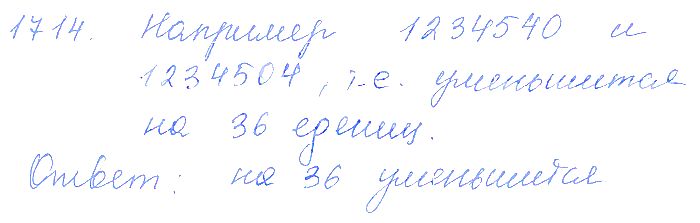 1714. Например 1234540 и
1234504, т.е. уменьшится
на 36 едениц.
Ответ: на 36 уменьшится